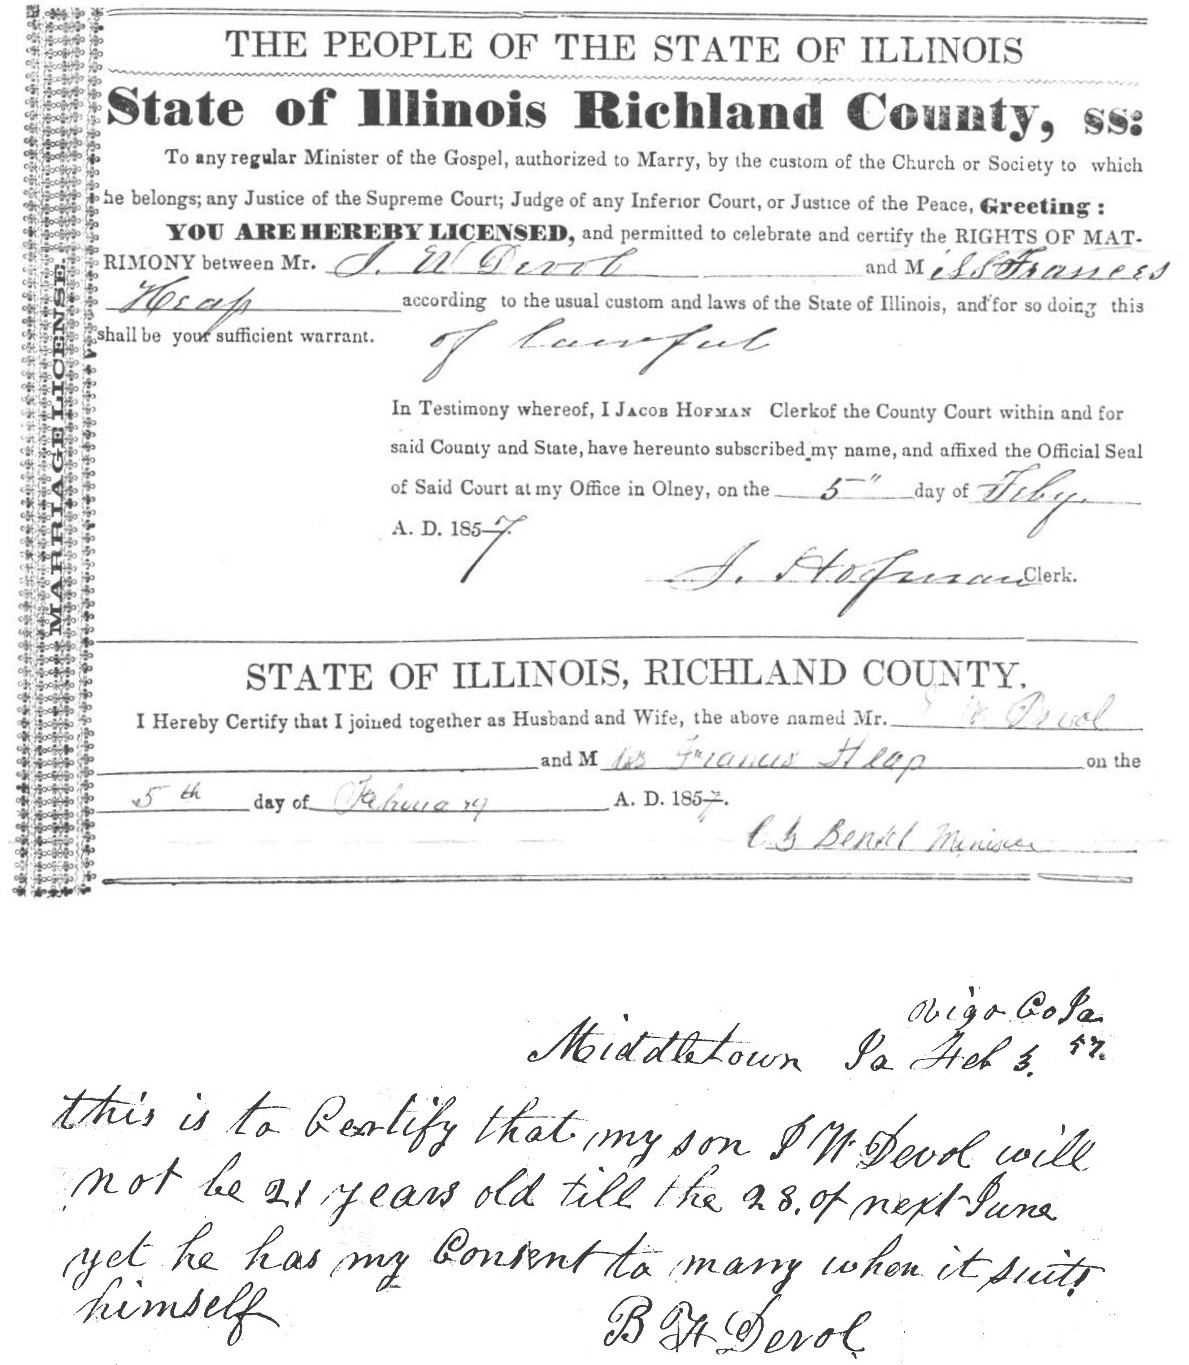 THE PEOPLE OF THE STATE OF ILLINOIS
State of Illinois Richland County, ss:
To any regular Minister of the Gospel, authorized to Marry, by the custom of the Church or Society to which
he belongs; any Justice of the Supreme Court; Judge of any Inferior Court, or Justice of the Peace, Greeting:
YOU ARE HEREBY LICENSED, and permitted to celebrate and certify the RIGHTS OF MAT-
RIMONY between Mr. J. W Devol and Miss Frances
Heap according to the usual custom and laws of the State of Illinois, and for so doing this
shall be your sufficient warrant. of lawful
In Testimony whereof, I JACOB HOFMAN Clerkof the County Court within and for
said County and State, have hereunto subscribed my name, and affixed the Official Seal
of Said Court at my Office in Olney, on the 5" day of Feby.
A. D. 1857.
J. Hofman Clerk.
MARRIAGE LICENSE.
STATE OF ILLINOIS, RICHLAND COUNTY.
I Hereby Certify that I joined together as Husband and Wife, the above named Mr. W Devol
and Miss Francis Heap on the
5th day of February A. D. 1857.
Minister
Vigo Co Ia
Middletown Ia Feb 3. 57.
this is to Certify that my son J W Devol will
not be 21 years old till the 28. of next June
yet he has my Consent to marry when it suits
himself
B H Devol.